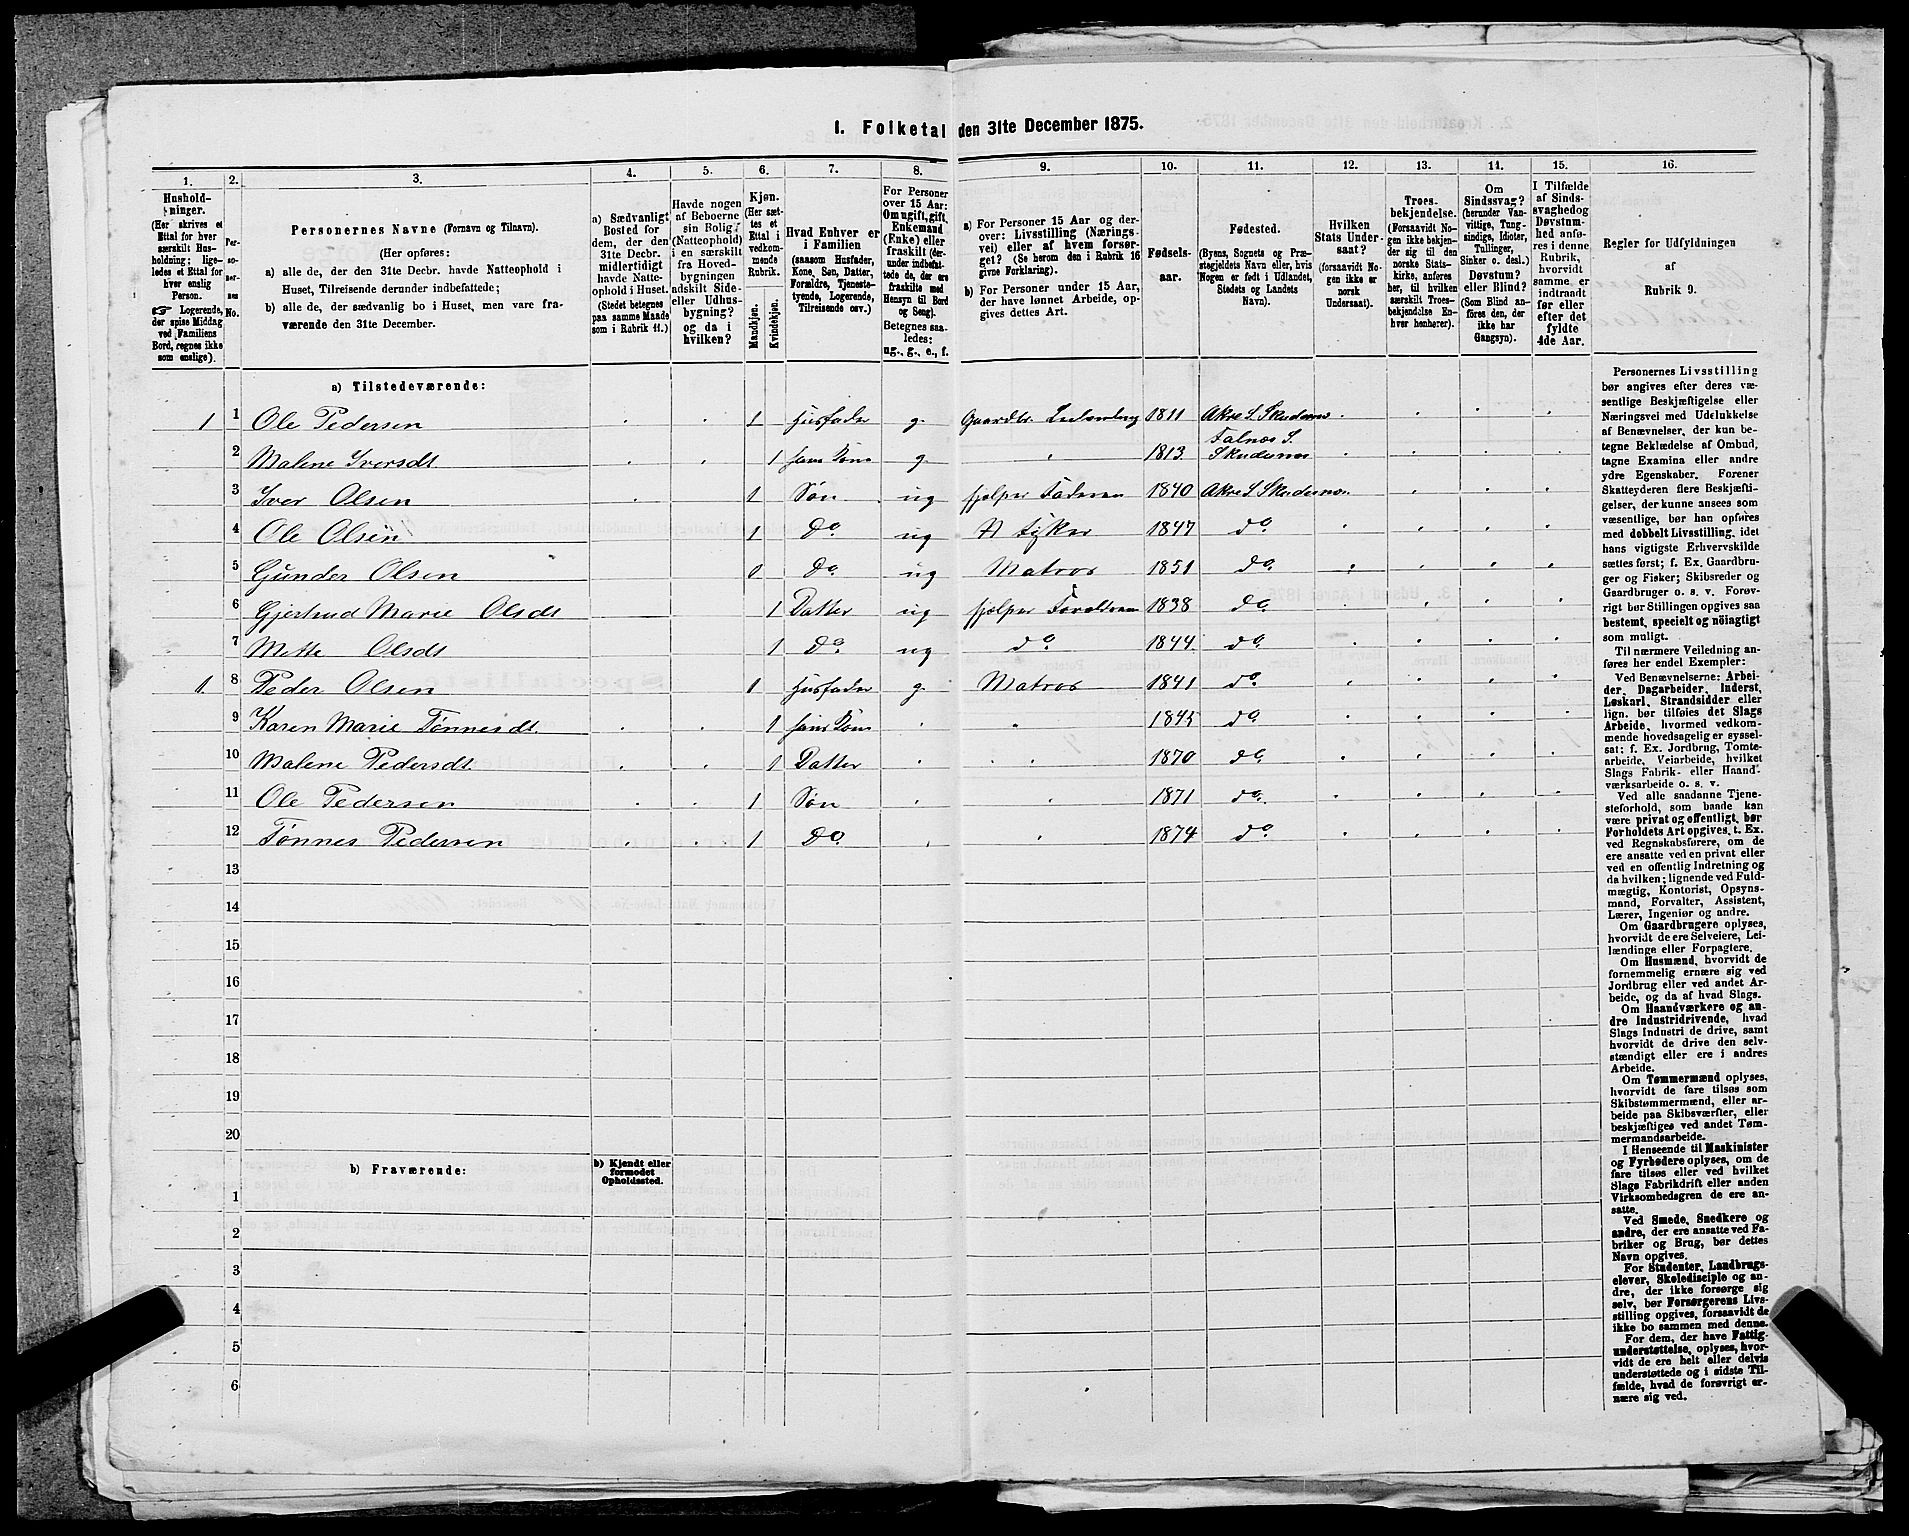 1. Folketal den 31te December 1875.
1.
Hushold-
ninger.
(Her skrives et
Ettal for hver
særskilt Hus-
holdning; lige-
ledes et Ettal for
hver enslig
Person.
☞ Logerende,
der spise Middag
ved Familiens
Bord, regnes ikke
som enslige).
2.
Per-
so-
ner-
nes
No.
3.
Personernes Navne (Fornavn og Tilnavn).
(Her opføres:
a) alle de, der den 31te Decbr. havde Natteophold i
Huset, Tilreisende derunder indbefattede;
b) alle de, der sædvanlig bo i Huset, men vare fra-
værende den 31te December.
4.
a) Sædvanligt
Bosted for
dem, der den
31te Decbr.
midlertidigt
havde Natte-
ophold i Huset.
(Stedet betegnes
paa samme Maade
som i Rubrik 11.)
5.
Havde nogen
af Beboerne
sin Bolig
(Natteophold)
i en særskilt
fra Hoved-
bygningen
adskilt Side-
eller Udhus-
bygning?
og da i
hvilken?
6.
Kjøn.
(Her sæt-
tes et
Ettal i
vedkom-
mende
Rubrik.
Mandkjøn.
Kvindekjøn.
7.
Hvad Enhver er
i Familien
(saasom Husfader,
Kone, Søn, Datter,
Forældre, Tjeneste-
tyende, Logerende,
Tilreisende osv.)
8.
For Personer
over 15 Aar:
Om ugift, gift,
Enkemand
(Enke) eller
fraskilt (der-
under indbefat-
tede de, der ere
fraskilte med
Hensyn til Bord
og Seng).
Betegnes saa-
ledes:
ug., g., e., f.
9.
a) For Personer 15 Aar og der-
over: Livsstilling (Nærings-
vei) eller af hvem forsør-
get? (Se herom den i Rubrik 16
givne Forklaring).
b) For Personer under 15 Aar,
der have lønnet Arbeide, op-
gives dettes Art.
10.
Fødsels-
aar.
11.
Fødested.
(Byens, Sognets og Præ-
stegjeldets Navn eller, hvis
Nogen er født i Udlandet,
Stedets og Landets
Navn).
12.
Hvilken
Stats Under-
saat?
(forsaavidt No-
gen ikke er
norsk
Undersaat).
13.
Troes-
bekjendelse.
(Forsaavidt No-
gen ikke bekjen-
der sig til den
norske Stats-
kirke, anføres
her, til hvilken
særskilt Troes-
bekjendelse En-
hver henhører).
14.
Om
Sindssvag?
(herunder Van-
vittige, Tung-
sindige, Idioter,
Tullinger,
Sinker o. desl.)
Døvstum?
eller Blind?
(Som Blind an-
føres den, der
ikke har
Gangsyn).
15.
I Tilfælde
af Sinds-
svaghed og
Døvstum-
hed anfø-
res i denne
Rubrik,
hvorvidt
samme er
indtraadt
før eller
efter det
fyldte
4de Aar.
16.
Regler for Udfyldningen
af
Rubrik 9.
a) Tilstedeværende:
1 1 Ole Pedersen 1 Husfader g. Gaardbr. 1811 Akre S. Skudenes
2 Malene Iversdt 1 hans Kone g. 1813 Falnæs S. Skudenes
3 Iver Olsen 1 Søn ug hjælper Faderen 1840 Akre S. Skudenes
4 Ole Olsen 1 Do. ug 1847 do.
5 Gunder Olsen 0 Do. ug Matros 1851 do.
6 Gjertrud Marie Olsdt 1 Datter ug hjælper Forældrene 1838 do.
7 Mette Olsdt 1 Do. ug do. 1844 do.
1. 8 Peder Olsen 1 Husfader g. Matros 1841 do.
9 Karen Marie Tønnesdt. 1 hans Kone 1845 do.
10 Malene Pedersdt. 1 Datter 1870 do.
11 Ole Pedersen 1 Søn 1871 do.
12 Tønnes Pedersen 1 Do. 1874 do.
13
14
15
16
17
18
19
20
b) Fraværende:
b) Kjendt eller
formodet
Opholdssted.
1
2
3
4
5
6
Personernes Livsstilling
bør angives efter deres væ-
sentlige Beskjæftigelse eller
Næringsvei med Udelukkelse
af Benævnelser, der kun be-
tegne Beklædelse af Ombud,
tagne Examina eller andre
ydre Egenskaber. Forener
Skatteyderen flere Beskjæfti-
gelser, der kunne ansees som
væsentlige, bør han opføres
med dobbelt Livsstilling, idet
hans vigtigste Erhvervskilde
sættes først; f. Ex. Gaardbru-
ger og Fisker; Skibsreder og
Gaardbruger o. s. v. Forøv-
rigt bør Stillingen opgives saa
bestemt, specielt og nöiagtigt
som muligt.
Til nærmere Veiledning an-
føres her endel Exempler:
Ved Benævnelserne: Arbei-
der, Dagarbeider, Inderst,
Løskarl, Strandsidder eller
lign. bør tilføies det Slags
Arbeide, hvormed vedkom-
mende hovedsagelig er syssel-
sat; f. Ex. Jordbrug, Tomte-
arbeide, Veiarbeide, hvilket
Slags Fabrik- eller Haand-
værksarbeide o. s. v.
Ved alle saadanne Tjene-
steforhold, som baade kan
være privat og offentligt, bør
Forholdets Art opgives, t. Ex.
ved Regnskabsførere, om de
ere ansatte ved en privat eller
ved en offentlig Indretning og
da hvilken; lignende ved Fuld-
mægtig, Kontorist, Opsyns-
mand, Forvalter, Assistent,
Lærer, Ingeniør og andre.
Om Gaardbrugere oplyses,
hvorvidt de ere Selveiere, Lei-
lændinge eller Forpagtere.
Om Husmænd, hvorvidt de
fornemmelig ernære sig ved
Jordbrug eller ved andet Ar-
beide, og da af hvad Slags.
Om Haandværkere og an-
dre Industridrivende, hvad
Slags Industri de drive, samt
hvorvidt de drive den selv-
stændigt eller ere i andres
Arbeide.
Om Tømmermænd oplyses,
hvorvidt de fare tilsøs som
Skibstømmermænd, eller ar-
beide paa Skibsværfter, eller
beskjæftiges ved andet Tøm-
mermandsarbeide.
I Henseende til Maskinister
og Fyrbødere oplyses, om de
fare tilsøs eller ved hvilket
Slags Fabrikdrift eller anden
Virksomhedsgren de ere an-
satte.
Ved Smede, Snedkere og
andre, der ere ansatte ved Fa-
briker og Brug, bør dettes
Navn opgives.
For Studenter, Landbrugs-
elever, Skoledisciple og an-
dre, der ikke forsørge sig
selv, bør Forsørgerens Livs-
stilling opgives, forsaavidt de
ikke bo sammen med denne.
For dem, der have Fattig-
understøttelse, oplyses, hvor-
vidt de ere helt eller delvis
understøttede og i sidste Til-
fælde, hvad de forøvrigt er-
nære sig ved.